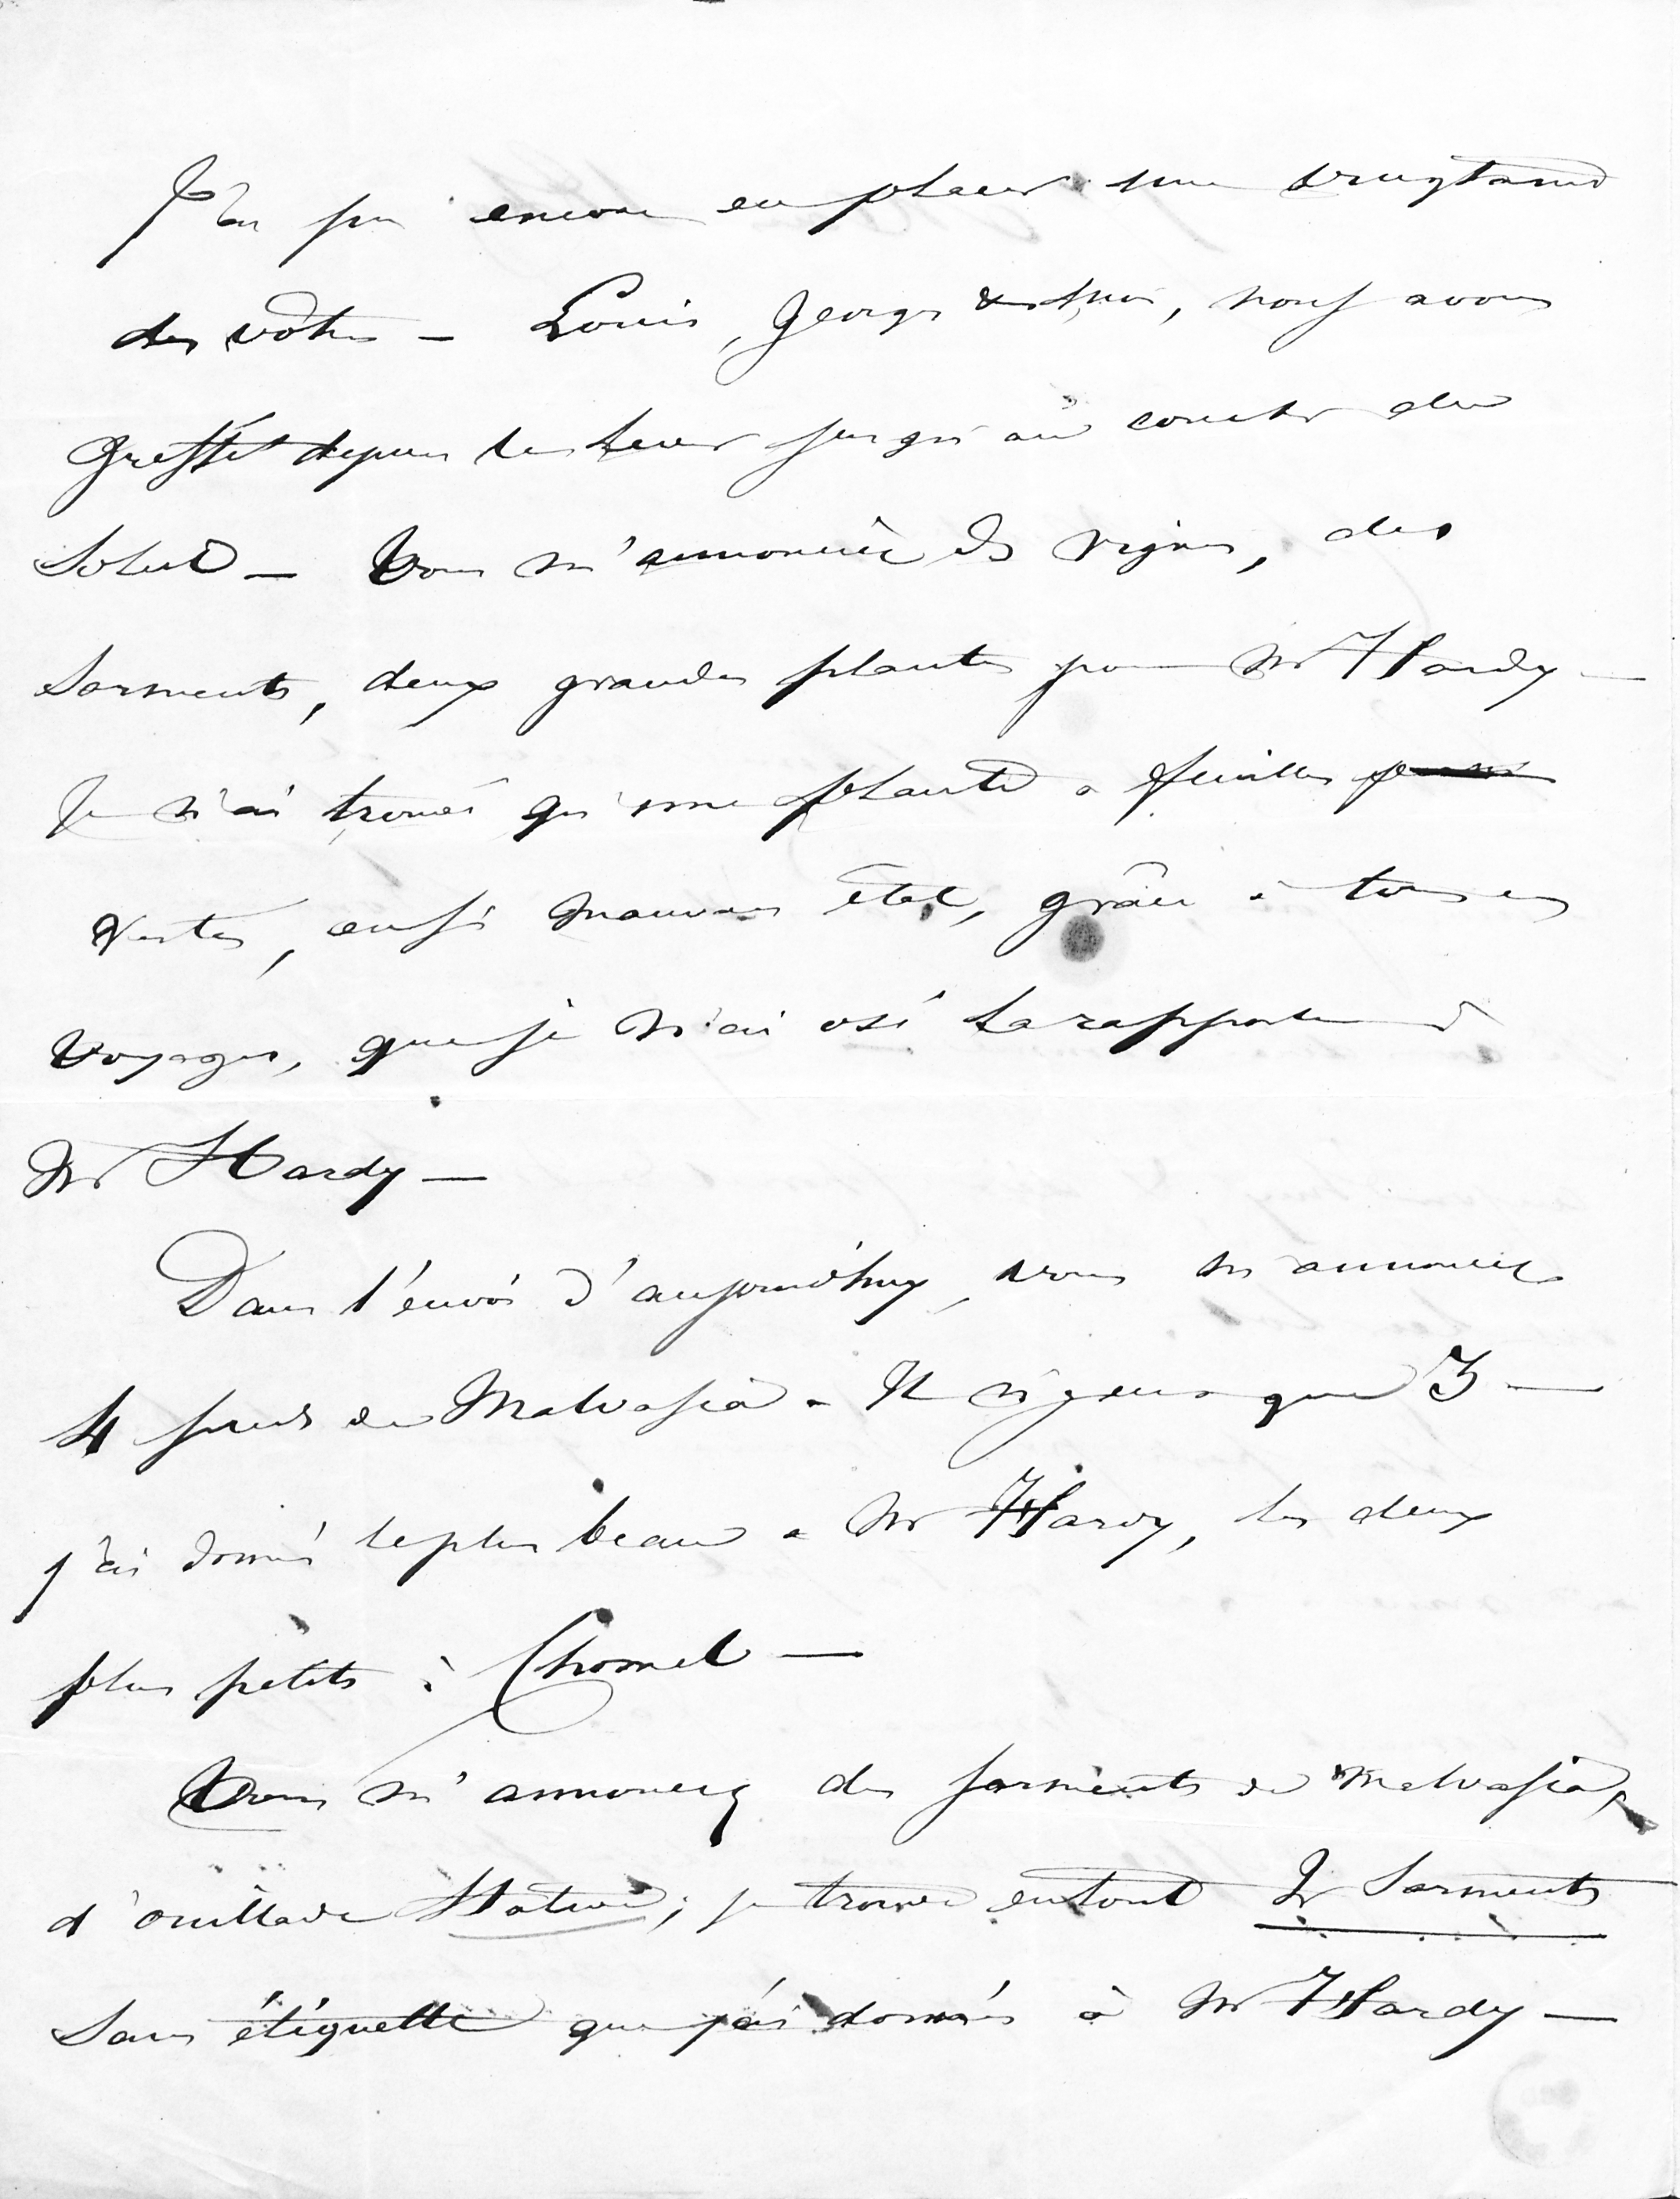 J'ai pu encore en placer une vingtaine
des vôtres — Louis, George & moi, nous avons
greffé depuis le lever jusqu'au coucher du
Soleil — Vous m'annonciez des vignes, des
Sarments, deux grandes plantes pour Mr Hardy —
Je n'ai trouvé qu'une plante a feuilles
vertes, en si mauvais état, grâce à tous ces
voyages, que je n'ai osé la rapporter à
Mr Hardy —
Dans l'envoi d'aujourd'huy, vous m'annoncez
4 pieds de Malvasia - Il n'y en a que 3 —
j'ai donné le plus beau a Mr Hardy, les deux
plus petits à Chomel —
Vous m'annoncez des sarments de Malvasia,
d'ouillade ; je trouve en tout Sarments
Sans étiquette que j'ai donnés à Mr Hardy —